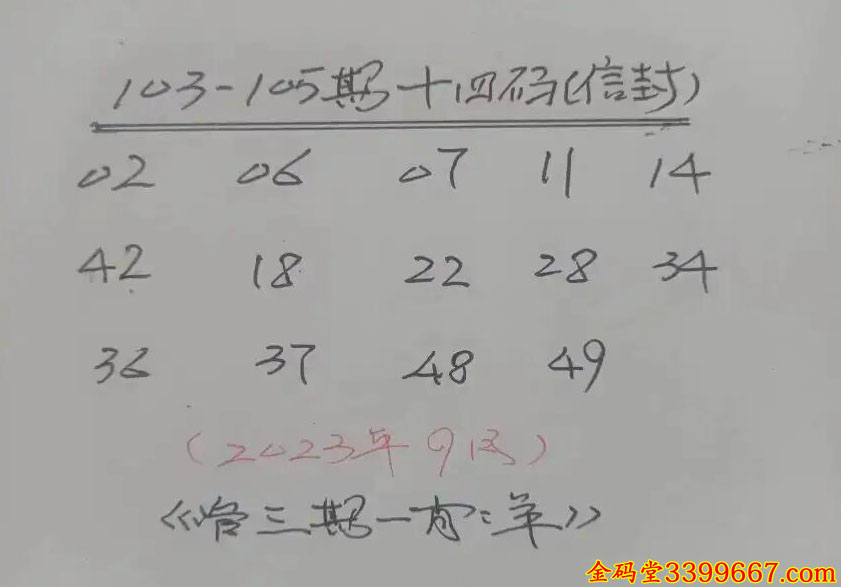 103-105期十四码(信封)
02 06 07 11 14
42 18 22 28 34
36 37 48 49
(2023年9月)
《三期一肖:羊》
金码堂3399667.com